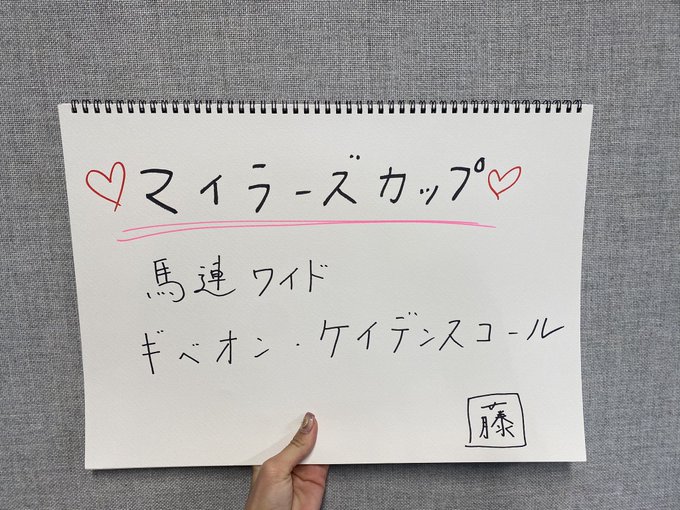 マイラーズカップ
馬連ワイド
ギベオン・ケイデンスコール
藤